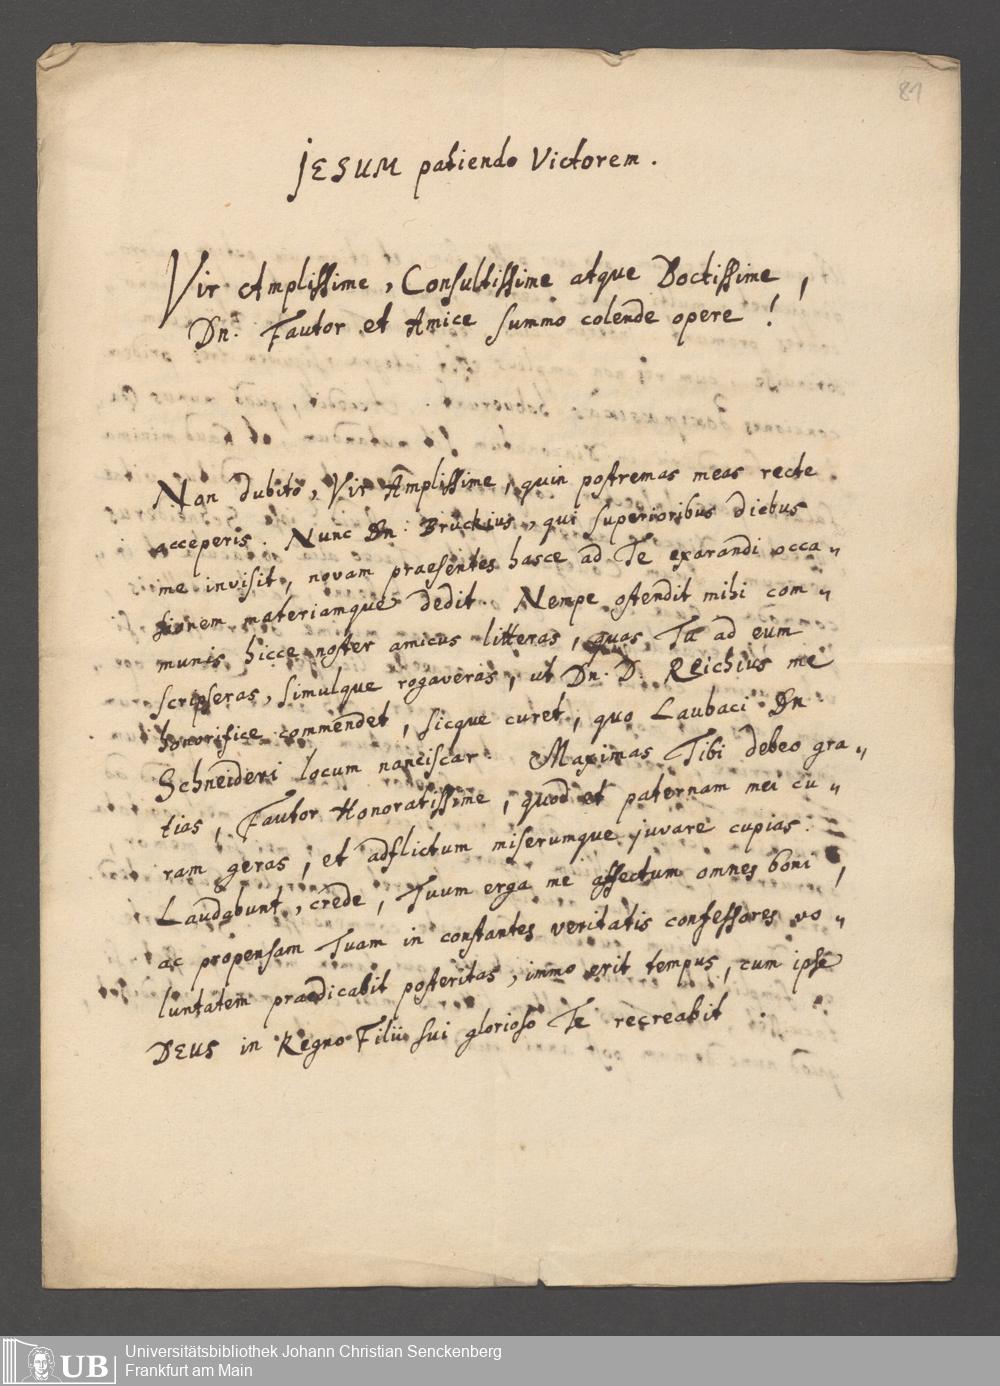 81
JESUM patiendo Victorem.
Vir Amplissime, Consultissime atque Doctissime,
Dn. Fautor et Amice summo colende opere!
Non dubito, Vir Amplissime, quin postremas meas recte
acceperis. Nunc Dn. Bruckius, qui superioribus diebus
me invisit, novam praesentes hasce ad Te exarandi occa„
sionem materiamque dedit. Nempe ostendit mihi com„
munis hicce noster amicus litteras, quas Tu ad eum
scripseras, simulque rogaveras, ut Dn. D. Reichius me
honorifice commendet, sicque curet, quo Laubaci Dn.
Schneideri locum nanciscar. Maximas Tibi debeo gra„
tias, Fautor Honoratissime, quod et paternam mei cu„
ram geras, et adflictum miserumque juvare cupias.
Laudabunt, crede, Tuum erga me affectum omnes boni,
ac propensam Tuam in constantes veritatis confessores vo„
luntatem praedicabit posteritas, immo erit tempus, cum ipse
DEUS in Regno Filii sui glorioso Te recreabit.
UB
Universitätsbibliothek Johann Christian Senckenberg
Frankfurt am Main